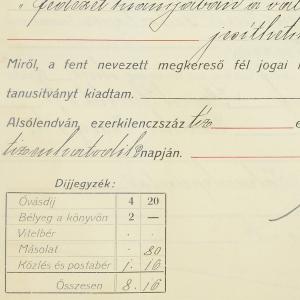 „ fedezet hiányjában a vál
jesíthet
Miről, a fent nevezett megkereső fél jogai
tanusítványt kiadtam.
Alsólendván, ezerkilenczszáz tiz
tizenhatodik napján.
Díjjegyzék:
Óvásdíj 4 20
Bélyeg a könyvön 2 —
Vitelbér . .
Másolat . 80
Közlés és postabér 1. 16
Összesen 8. 16